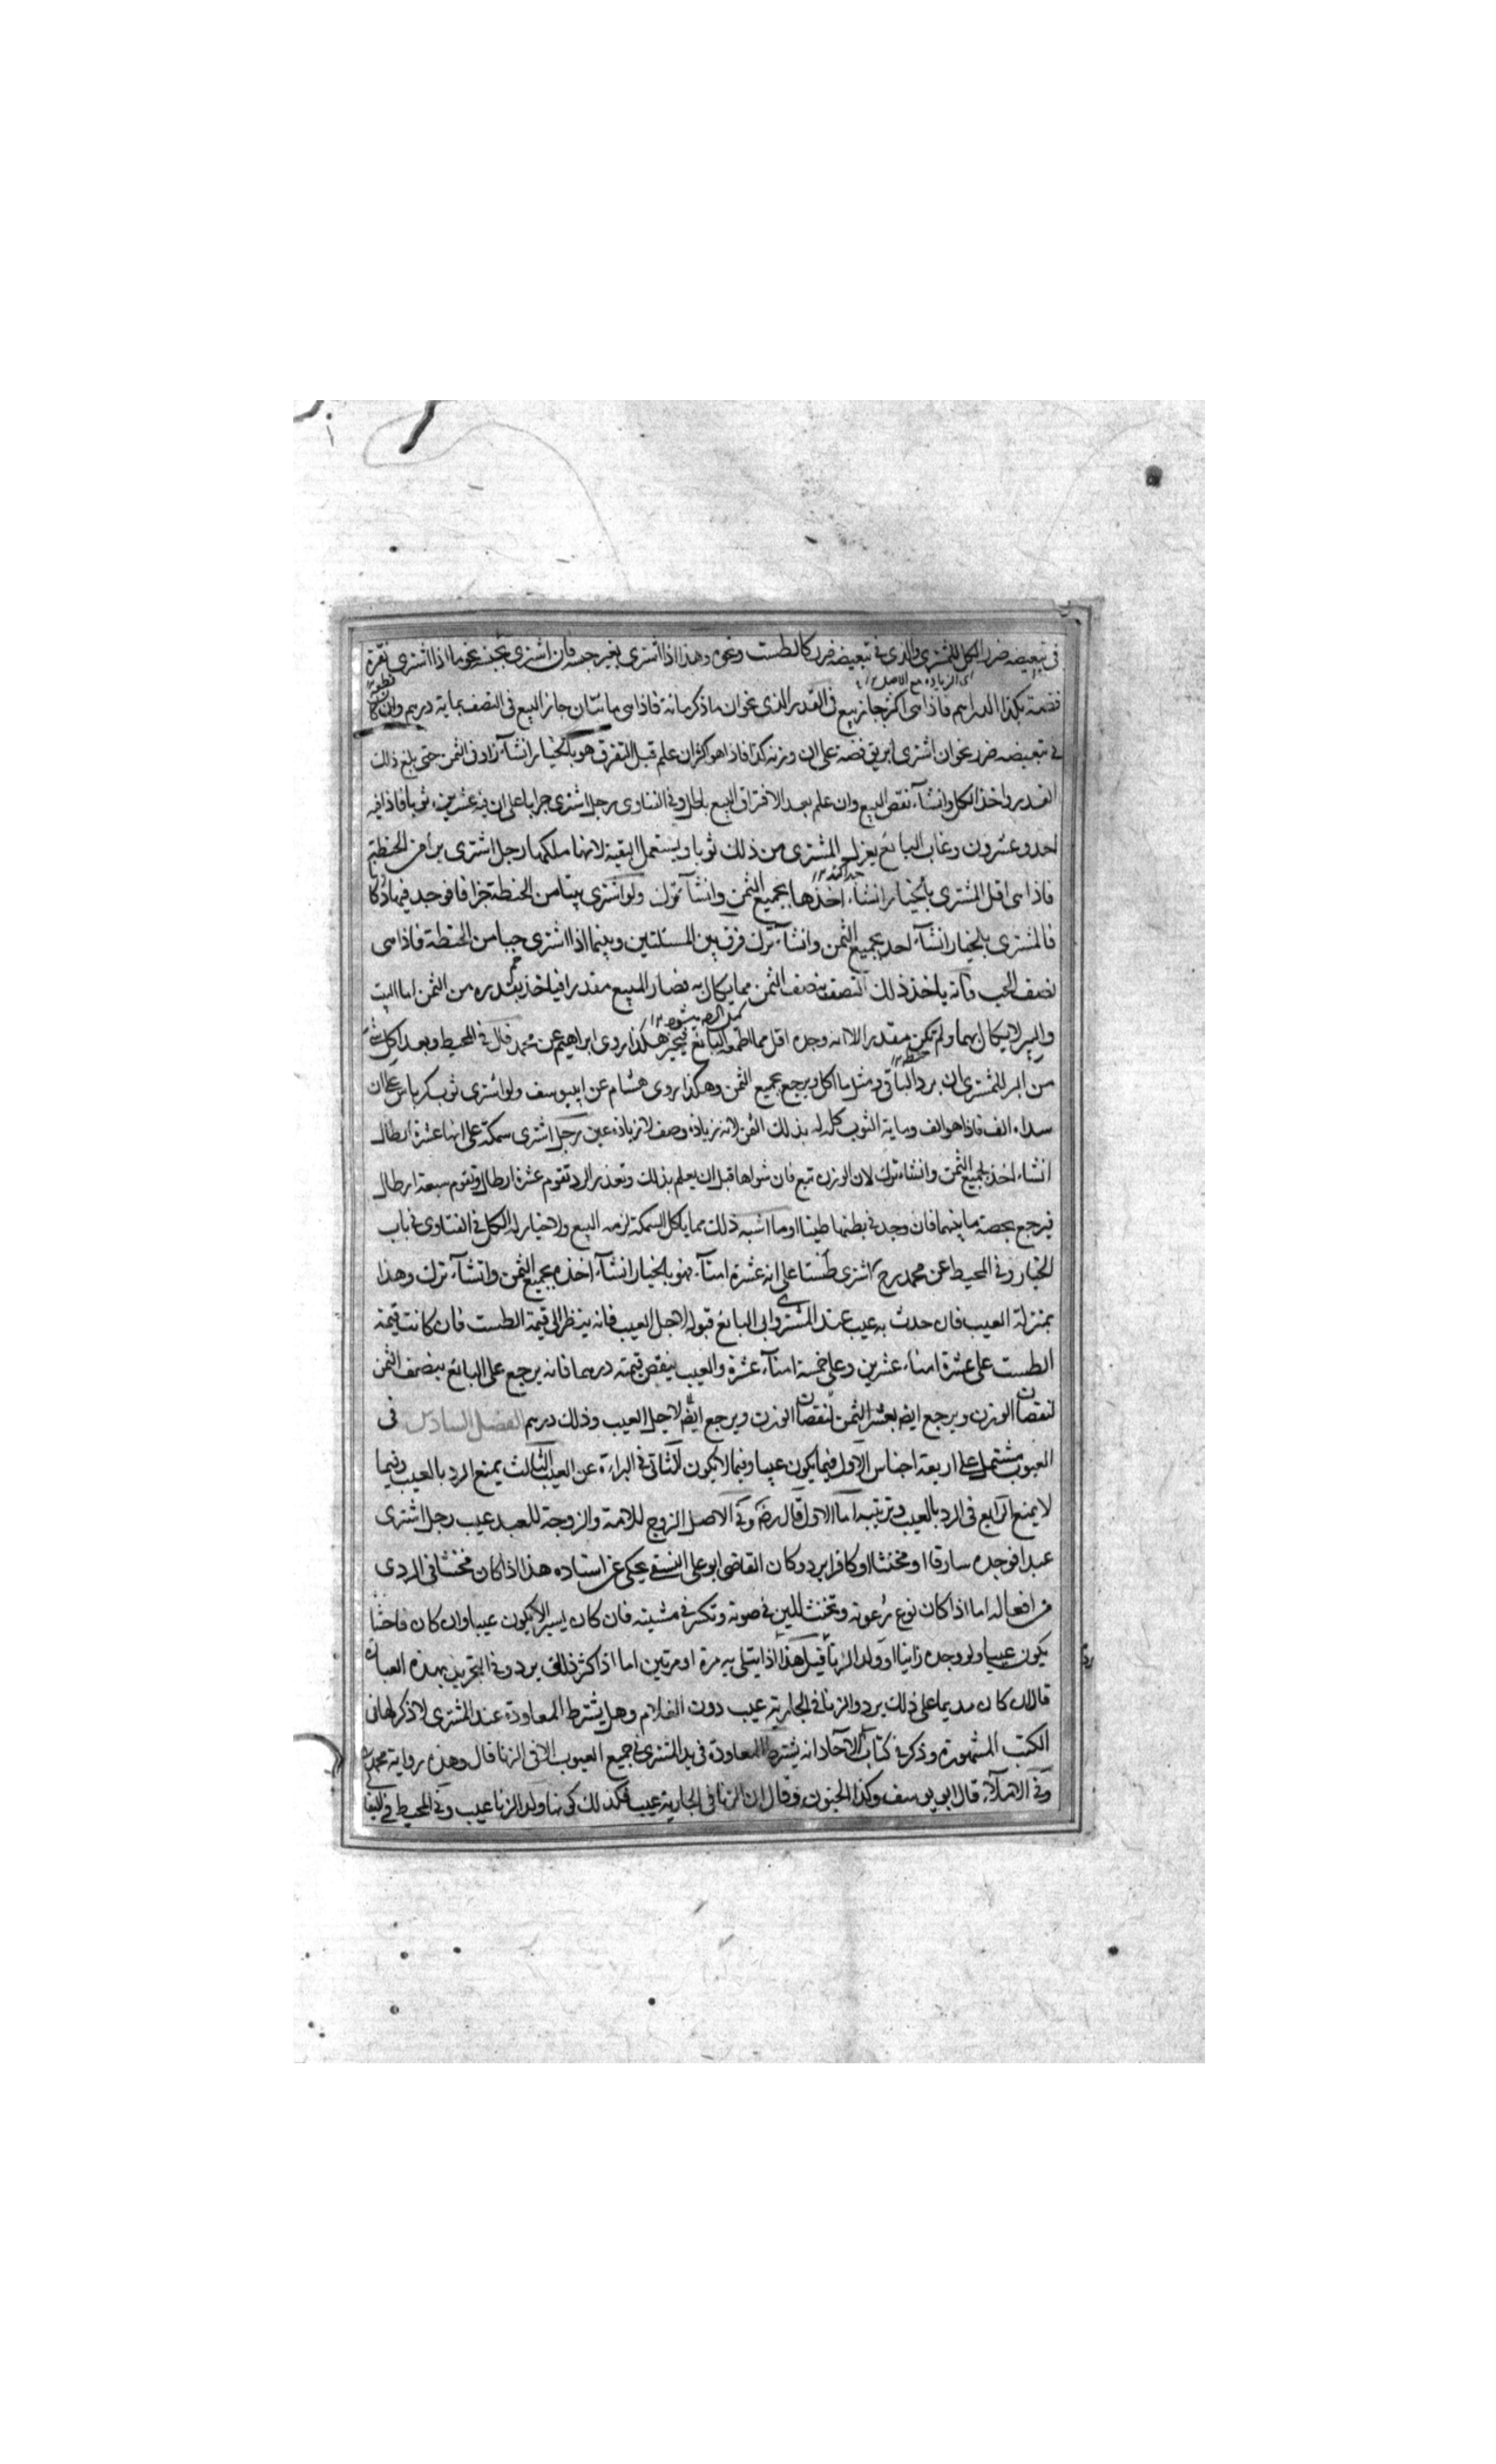 في تبعيضه ضرر الكل للمشتري والذي في تبعيضه ضرر كالطست ونحوه وهذا اذا اشترى بغير جنسه فان اشترى بجنسه نحو ما اذا اشترى نقرة
اى الزيادة مع الاصل ١٢
فضة بكذا الدراهم فاذا هى اكثر جاز بيع فى القدر الذى نحو ان ما ذكر مائة فاذا هى مائتان جاز البيع فى النصف بماية درهم وان كان
في تبعيضه ضرر نحو ان اشترى ابريق فضة على ان وزنه كذا فاذا هو اكثر ان علم قبل التفرق هو بالخيار انشآء زاد فى الثمن حتى بلغ ذلك
القدر واخذ الكل وانشآء نقض البيع وان علم بعد الافتراق البيع باطل وفى الفتاوى رجل اشترى جرابا على ان فيه عشرين ثوبا فاذا فيه
احد وعشرون وغاب البائع يعزل المشترى من ذلك ثوبا ويستعمل البقية لانها ملكها رجل اشترى برا من الحنطة
فاذا هى اقل المشترى بالخيار انشآء اخذها بجميع الثمن وانشآء ترك ولو اشترى بيتا من الحنطة جزافا فوجد فيها دكانا
فالمشترى بالخيار انشآء اخذ بجميع الثمن وانشآء ترك فرق بين المسئلتين وبينما اذا اشترى حبا من الحنطة فاذا هى
نصف الحب فانه ياخذ ذلك النصف بنصف الثمن مما يكال به فصار المبيع مقدرا فياخذ بقدره من الثمن اما البيت
والبير لا يكال بهما ولم تكن مقدرا الا انه وجده اقل مما اطمعه البائع فيخير هكذا روى ابراهيم عن محمد قال فى المحيط وبعد اكل شئ
من البر للمشترى ان يرد الباقى ومثل ما اكل ويرجع بجميع الثمن وهكذا روى هشام عن ابييوسف ولو اشترى ثوب كرباس على ان
سداه الف فاذا هو الف وماية الثوب كله له بذلك الثمن لانه زيادة وصف لا زيادة عين رجل اشترى سمكة على انها عشرة ارطال
انشاء اخذ بجميع الثمن وانشاء ترك لان الوزن تبع فان شواها قبل ان يعلم بذلك وتعذر الرد تقوم عشرة ارطال وتقوم سبعة ارطال
فيرجع بحصة ما بينهما فان وجد فى بطنها طينا او ما اشبه ذلك مما ياكل السمكة لزمه البيع ولا خيار له الكل فى الفتاوى فى باب
الخيار وفى المحيط عن محمد رح اشترى طستا على انه عشرة امنآء فهو بالخيار انشآء اخذه بجميع الثمن وانشآء ترك وهذا
بمنزلة العيب فان حدث به عيب عند المشترى وابى البائع قبوله لاجل العيب فانه ينظر الى قيمة الطست فان كانت قيمة
الطست على عشرة امناء عشرين وعلى خمسة امنآء عشرة والعيب ينقص قيمته درهما فانه يرجع على البائع بنصف الثمن
لنقصان الوزن ويرجع ايضا بعشر الثمن لنقصان الوزن ويرجع ايضا لاجل العيب وذلك درهم الفصل السادس فى
العيوب مشتمل على اربعة اجناس الاول فيما يكون عيبا وفيما لا يكون الثانى فى البراءة عن العيب الثالث يمنع الرد بالعيب وفيما
لا يمنع الرابع فى الرد بالعيب وترتيبه اما الاول قال رضه وفى الاصل الزوج للامة والزوجة للعبد عيب رجل اشترى
عبدا فوجده سارقا او مخنثا او كافرا يرد وكان القاضى ابو على النسفى يحكى عن استاذه هذا اذا كان مخنثا فى الردى
من افعاله اما اذا كان نوع رعونة وتخنث للين فى صوته وتكسر فى مشيته فان كان يسيرا لا يكون عيبا وان كان فاحشا
يكون عيبا ولو وجده زانيا او ولد الزنا قيل هذا اذا ابتلى به مرة او مرتين اما اذا كثر ذلك يرد وفى التجريد بهذه العبارة
قال ان كان مديما على ذلك يرد والزنا فى الجارية عيب دون الغلام وهل يشترط المعاودة عند المشترى لا ذكر لها فى
الكتب المشهورة وذكر فى كتاب الآحاد انه يشترط المعاودة فى يد المشترى فى جميع العيوب الا فى الزنا قال وهذه رواية محمد
وفى الاملآء قال ابو يوسف وكذا الجنون وقال ان الزنا فى الجارية عيب فكذلك كونها ولد الزنا عيب وفى المحيط